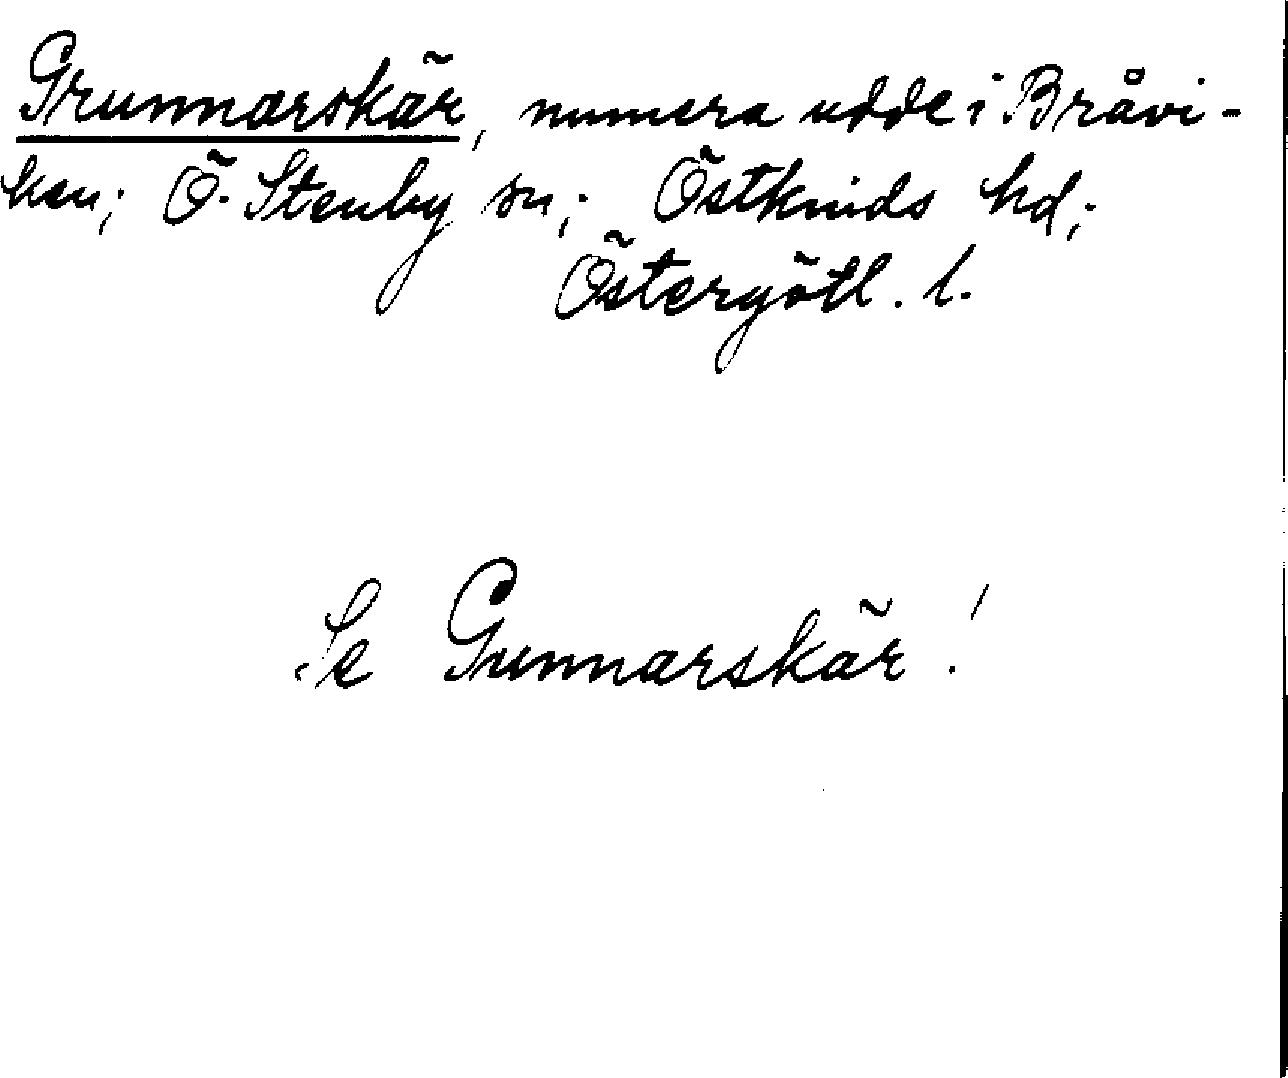 Grunnarskär, numera udde i Bråvi-
ken; Ö. Stenby sn; Östkinds hd;
Östergötl. l.
Se Gunnarskär!